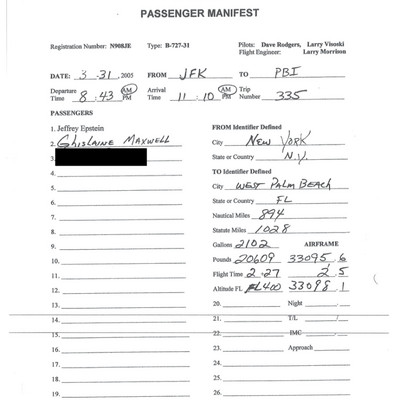 PASSENGER MANIFEST
Registration Number: N908JE Type: B-727-31 Pilots: Dave Rodgers, Larry Visoski
Flight Engineer: Larry Morrison
DATE: 3-31, 2005 FROM JFK TO PBI
Departure Time 8:43 AM PM Arrival Time 11:10 AM PM Trip Number 335
PASSENGERS
1. Jeffrey Epstein FROM Identifier Defined
2. GHISLAINE MAXWELL City NEW YORK
3. State or Country N.Y.
4. TO Identifier Defined
5. City WEST PALM BEACH
6. State or Country FL
7. Nautical Miles 894
8. Statute Miles 1028
9. Gallons 2102 AIRFRAME
10. Pounds 20609 33095.6
11. Flight Time 2-27 2.5
12. Altitude FL FL400 33098.1
13. 20. Night
14. 21. T/L /
15. 22. IMC
16. 23. Approach
17. 24.
18. 25.
19. 26.